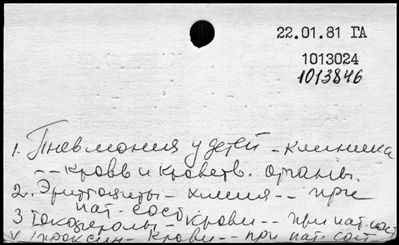 22.01.81 ГА
1013024
1013846
1. Пневмония у детей - клиника
-- кровь и кроветв. органы.
2. Эритроциты - химия -- при
пат. сост.
3 Токоферолы - крови -- при пат. сост
крови -- при пат. сост.